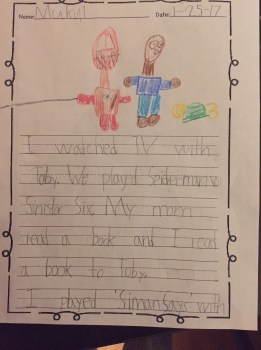 Name: Date: 1-25-17
I watched TV with
Toby. We played Spiderman vs
Sinister Six. My mom
read a book and I read
a book to Toby.
I played "Simon Says" with